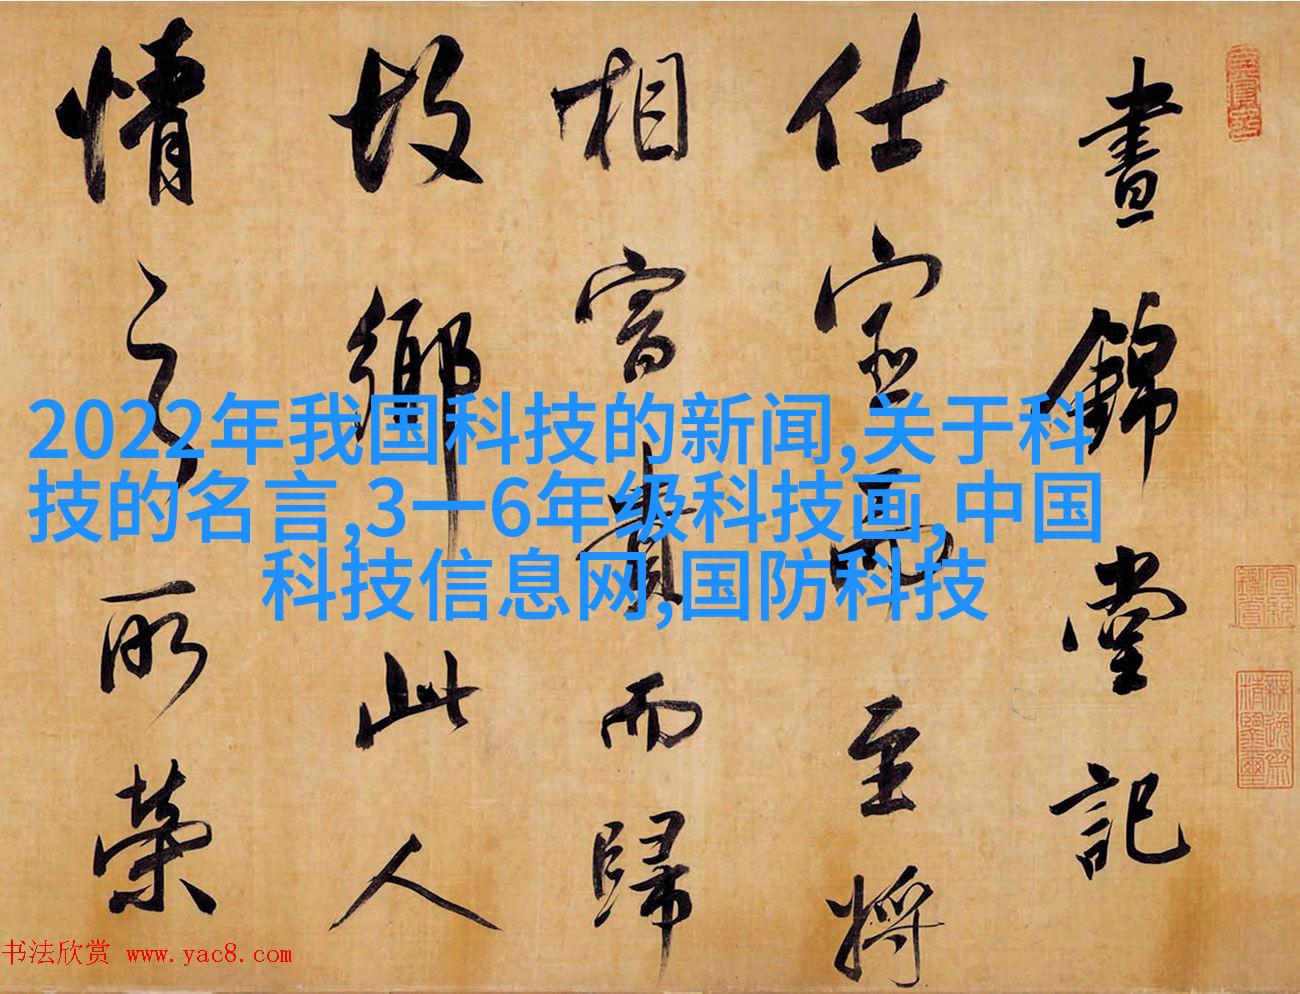 晝錦堂記
仕宦而至將
相富貴而歸
故鄉此人
情之所榮
2022年我国科技的新闻,关于科
技的名言,3一6年级科技画,中国
科技信息网,国防科技
书法欣赏 www.yac8.com